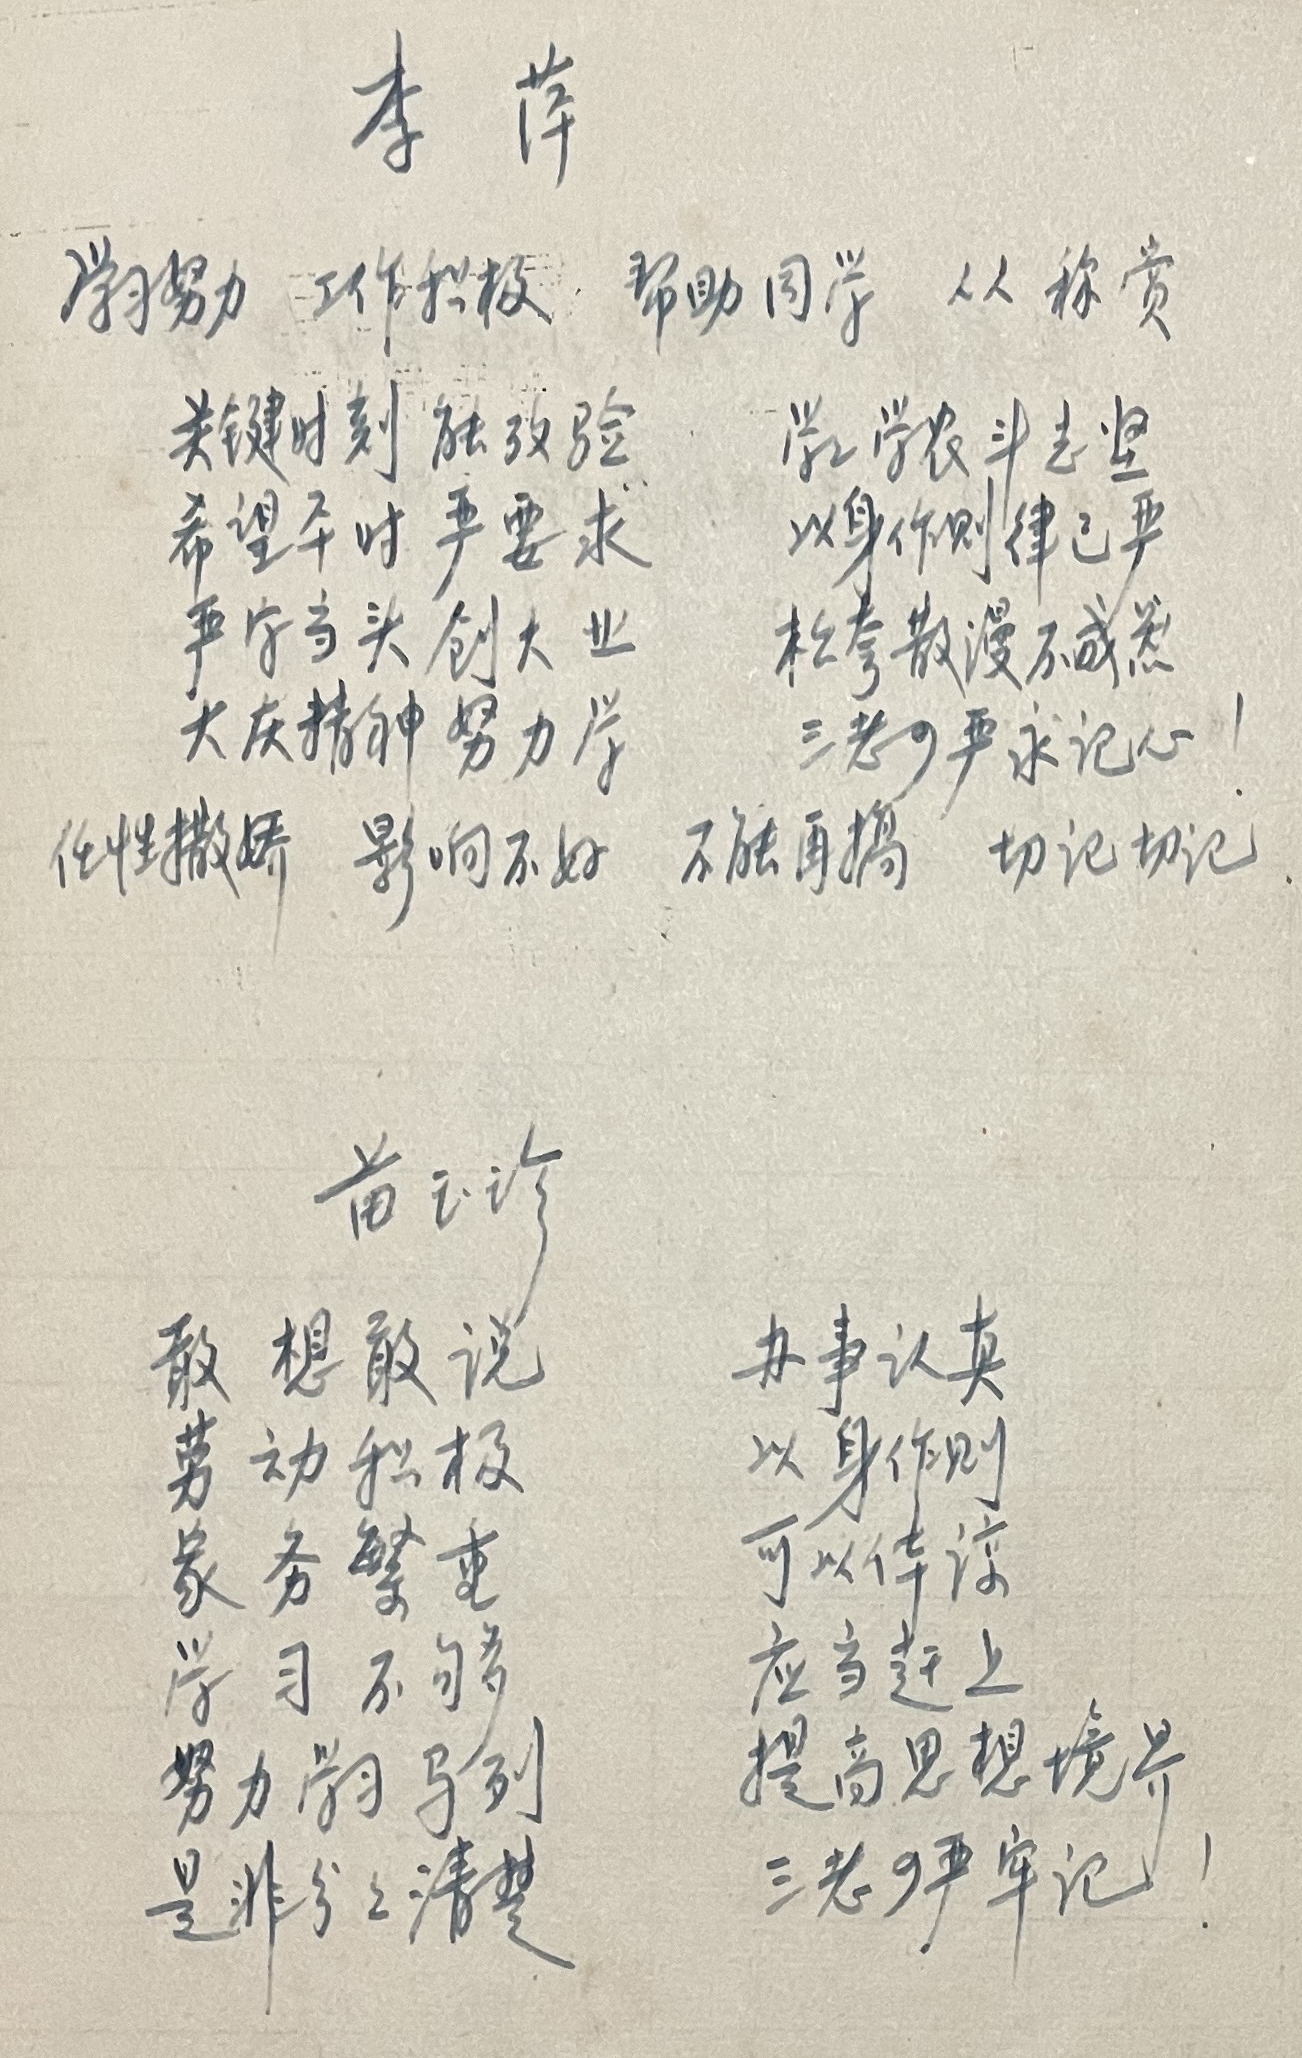 李 萍
学习努力 工作积极 帮助同学 人人称赏
关键时刻能攷验 学工学农斗志坚
希望平时严要求 以身作则律己严
严字当头创大业 松夸散漫不成
大庆精神努力学 三老四严永记心！
任性撒娇 影响不好 不能再搞 切记切记
苗玉珍
敢想敢说 办事认真
劳动积极 以身作则
家务繁重 可以体谅
学习不够 应当赶上
努力学习马列 提高思想境界
是非分清楚 三老四严牢记！